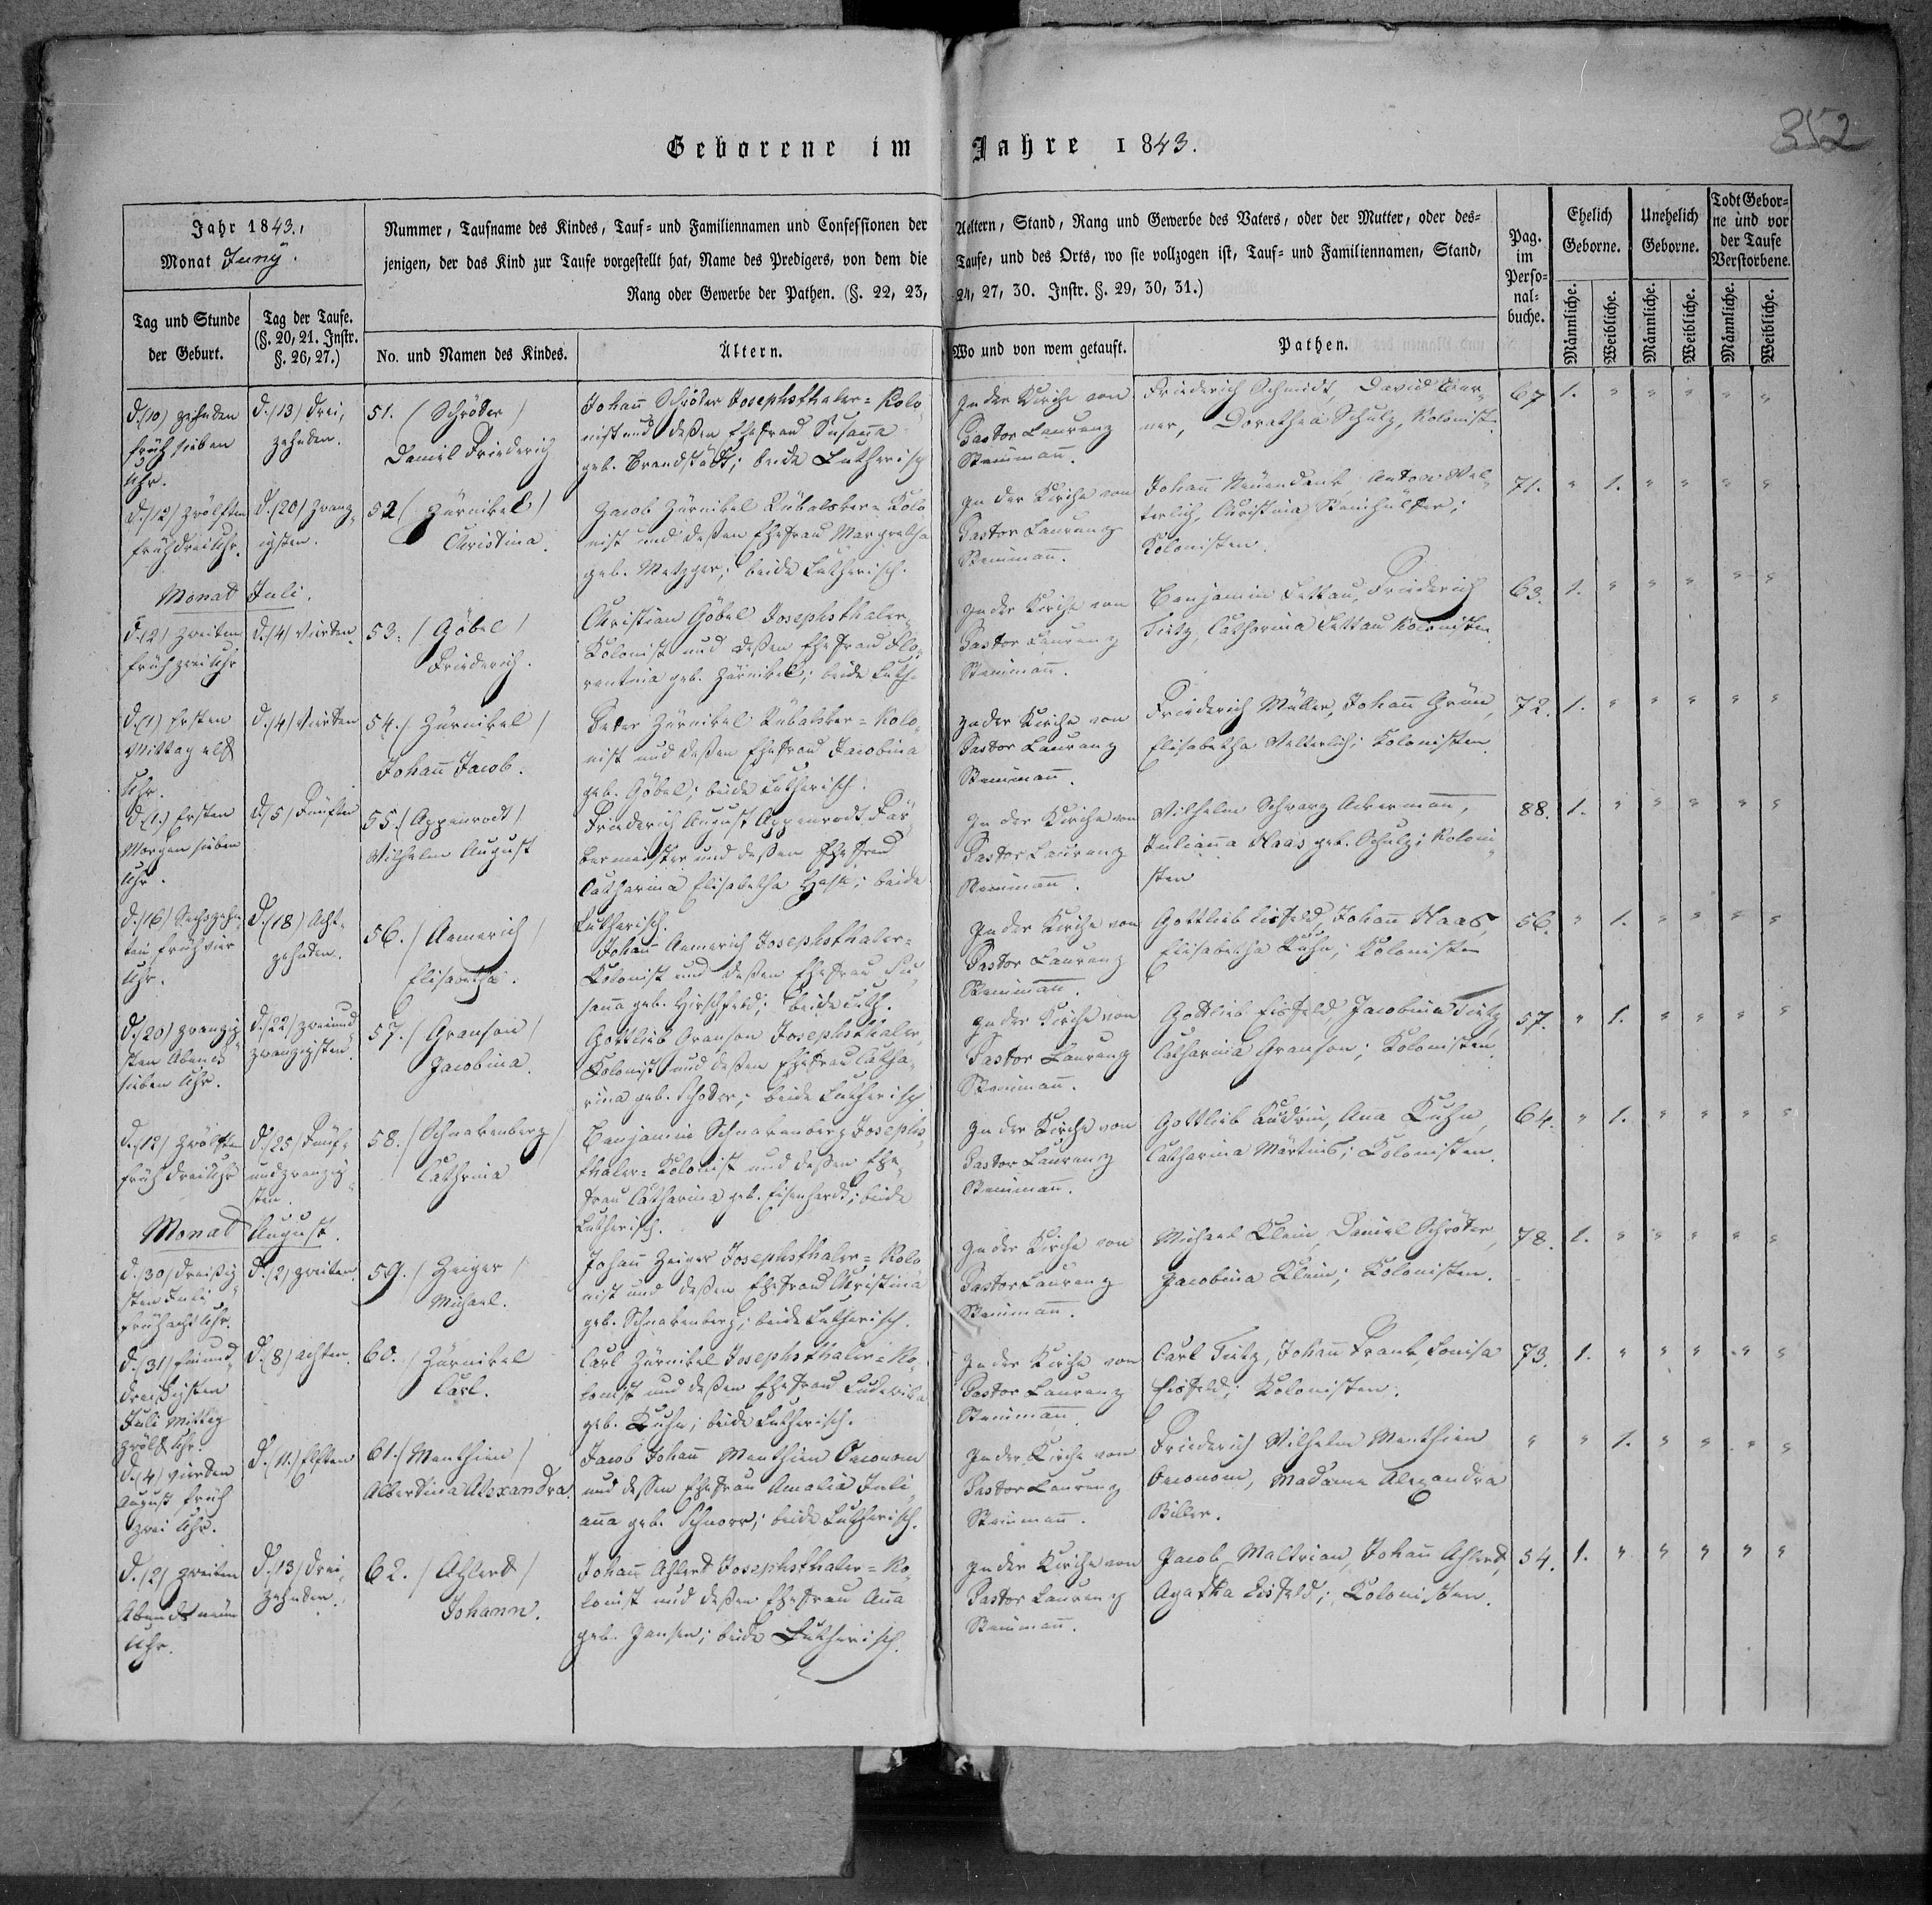 352
Geborene im Jahre 1843.
Jahr 1843.,
Monat Juny.
Nummer, Taufname des Kindes, Tauf- und Familiennamen und Confessionen der Aeltern, Stand, Rang und Gewerbe des Vaters, oder der Mutter, oder des-
jenigen, der das Kind zur Taufe vorgestellt hat, Name des Predigers, von dem die Taufe, und des Orts, wo sie vollzogen ist, Tauf- und Familiennamen, Stand,
Rang oder Gewerbe der Pathen. (§. 22, 23, 24, 27, 30. Instr. §. 29, 30, 31.)
Pag.
im
Perso-
nal-
buche.
Ehelich
Geborne.
Unehelich
Geborne.
Todt Gebor-
ne und vor
der Taufe
Verstorbene.
Tag und Stunde
der Geburt.
Tag der Taufe.
(§. 20, 21. Instr.
§. 26, 27.)
No. und Namen des Kindes.
Ältern.
Wo und von wem getauft.
Pathen.
Männliche.
Weibliche.
Männliche.
Weibliche.
Männliche.
Weibliche.
d. (10) zehnden
früh sieben
Uhr.
d. (13) drei-
zehnden.
51. (Schröder)
Daniel Friederich
Johann Schröder Josephsthaler-Kolo-
nist und deßen Ehefrau Susanna
geb. Brandstädt; beide Lutherisch
In der Kirche von
Pastor Laurenz
Steinmann.
Friederich Schmidt, David
ner, Dorathea Schulz, Kolonist.
67 1. " " " " "
d. (12) zwölften
früh drei Uhr.
d. (20) zwanz-
igsten.
52 (Zürnikel)
Christina.
Jacob Zürnikel Rübalsker-Kolo
nist und deßen Ehefrau Margretha
geb. Metzger; beide Lutherisch.
In der Kirche von
Pastor Laurenz
Steinmann.
Johann Neuendank, Anton Wel-
terlich, Christina
Kolonisten.
71. " 1. " " " "
Monat Juli.
d. (2) zweiten
früh zwei Uhr
d. (4) vierten
53. (Göbel)
Friederich.
Christian Göbel Josephsthaler-
Kolonist und deßen Ehefrau Flo-
rentina geb. Zürnikel; beide Luth.
In der Kirche von
Pastor Laurenz
Steinmann.
Benjamin Lettau, Friederich
Tietz, Catharina Lettau Kolonisten
63. 1. " " " " "
d. (1) ersten
Mittag elf
Uhr.
d. (4) vierten
54. (Zürnikel)
Johann Jacob.
Peter Zürnikel Rübalsker-Kolo-
nist und deßen Ehefrau Jacobina
geb. Göbel; beide Lutherisch.
In der Kirche von
Pastor Laurenz
Steinmann.
Friederich Müller, Johann Grün,
Elisabetha Welterlich; Kolonisten.
72. 1. " " " " "
d. (1.) ersten
Morgen sieben
Uhr.
d. (5) fünften
55. (Appenrodt)
Wilhelm August
Friederich August Appenrodt Fär-
bermeister und deßen Ehefrau
Catharina Elisabetha; beide
Lutherisch.
In der Kirche von
Pastor Laurenz
Steinmann.
Wilhelm Schwarz Ackermann,
Julianna Haas geb. Schulz; Koloni-
sten
88. 1. " " " " "
d. (16) Sechszehn-
ten früh vier
Uhr.
d. (18) acht-
zehnden.
56. (Aamerich)
Elisabetha.
Johann Aamerich Josephsthaler-
Kolonist und deßen Ehefrau Su-
sana geb. Hirschfeld; beide Luth.
In der Kirche von
Pastor Laurenz
Steinmann.
Gottlieb Eisfeld, Johann Haas,
Elisabetha Kuhn; Kolonisten
56. " 1. " " " "
d. (20) zwanzig-
sten Abends
sieben Uhr.
d. (22) zweiund
zwanzigsten.
57. (Granson)
Jacobina.
Gottlieb Granson Josephsthaler-
Kolonist und deßen Ehefrau Catha-
rina geb. Schoder; beide Lutherisch
In der Kirche von
Pastor Laurenz
Steinmann.
Gottlieb Eisfeld, Jacobina Tietz,
Catharina Granson; Kolonisten.
57. " 1. " " " "
d. (12) zwölften
früh drei Uhr
d. (25) fünf-
undzwanzig-
sten.
58. (Schnakenberg)
Cathrina
Benjamin Schnakenberg Josephs-
thaler-Kolonist und deßen Ehe-
frau Catharina geb. Eisenhardt; beide
Lutherisch.
In der Kirche von
Pastor Laurenz
Steinmann.
Gottlieb, Ana Kuhn,
Catharina Martins; Kolonisten.
64. " 1. " " " "
Monat August.
d. (30) dreißig-
sten Juli
früh acht Uhr.
d. (2) zweiten.
59. (Zeiger)
Michael.
Johann Zeiger Josephsthaler-Kolo
nist und deßen Ehefrau Christina
geb. Schnakenberg; beide Lutherisch.
In der Kirche von
Pastor Laurenz
Steinmann.
Michael Klein, Daniel Schröder,
Jacobina Klein; Kolonisten.
78. 1. " " " " "
d. (31) einund
dreißigsten
Juli Mittag
zwölf Uhr.
d. (8) achten.
60. (Zürnikel
Carl.
Carl Zürnikel Josephsthaler-Ko-
lonist und deßen Ehefrau Ludewika
geb. Kuhn; beide Lutherisch.
In der Kirche von
Pastor Laurenz
Steinmann.
Carl Tietz, Johann Frank, Louisa
Eisfeld; Kolonisten.
73. 1. " " " " "
d. (4) vierten
August früh
zwei Uhr.
d. (11.) elften
61. (Manthien)
Albertina Alexandra.
Jacob Johann Manthien Oeconom
und deßen Ehefrau Amalia Juli-
anna geb. Schnorr; beide Lutherisch.
In der Kirche von
Pastor Laurenz
Steinmann.
Friederich Wilhelm Manthien
Oeconom, Madama Alexandra
Biller.
" " 1. " " " "
d. (2) zweiten
Abends neun
Uhr.
d. (13) drei-
zehnden.
62. (Ahlert)
Johann.
Johann Ahlert Josephsthaler-Ko-
lonist und deßen Ehefrau Anna
geb. Jansen; beide Lutherisch.
In der Kirche von
Pastor Laurenz
Steinmann.
Jacob Maltrian, Johann Ahlert,
Agatha Eisfeld; Kolonisten.
54. 1. " " " " "